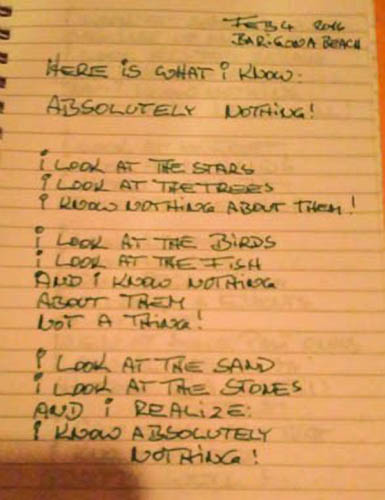 FEB 4 2016
BARIGONA BEACH
HERE IS WHAT i KNOW:
ABSOLUTELY NOTHING!
i LOOK AT THE STARS
i LOOK AT THE TREES
i KNOW NOTHING ABOUT THEM!
i LOOK AT THE BIRDS
i LOOK AT THE FISH
AND i KNOW NOTHING
ABOUT THEM
NOT A THING!
i LOOK AT THE SAND
i LOOK AT THE STONES
AND i REALIZE:
i KNOW ABSOLUTELY
NOTHING!